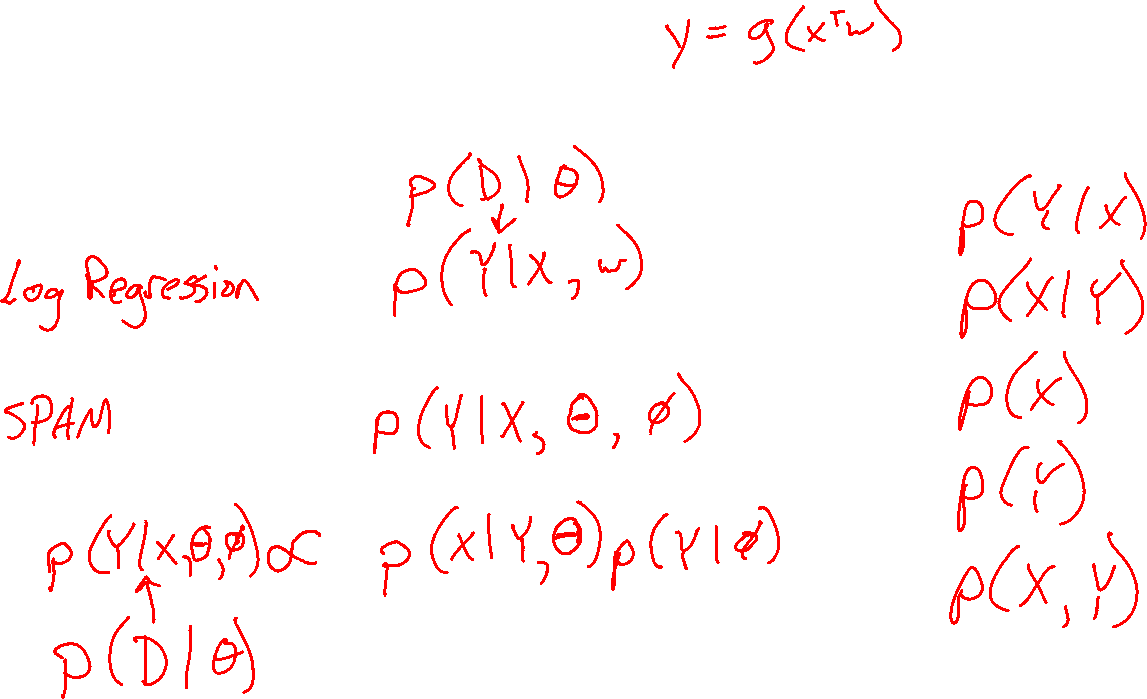 y = g(xᵀw)
p(D | θ)
↓
Log Regression p(Y | X, w)
SPAM p(Y | X, θ, ϕ)
p(Y | X, θ, ϕ) ∝ p(X | Y, θ) p(Y | ϕ)
↑
p(D | θ)
p(Y | X)
p(X | Y)
p(X)
p(Y)
p(X, Y)